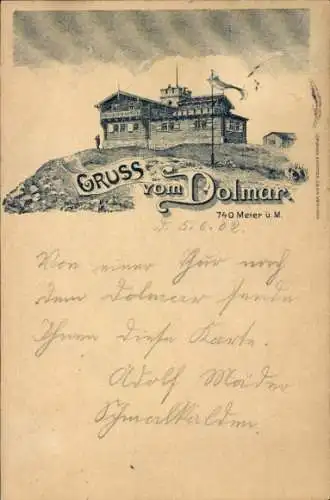 GRUSS vom Dolmar.
740 Meter ü. M.
d. 5.6.02.
Von einer Tour nach
dem Dolmar sende
Ihnen diese Karte.
Adolf Mäder
Schmalkalden.